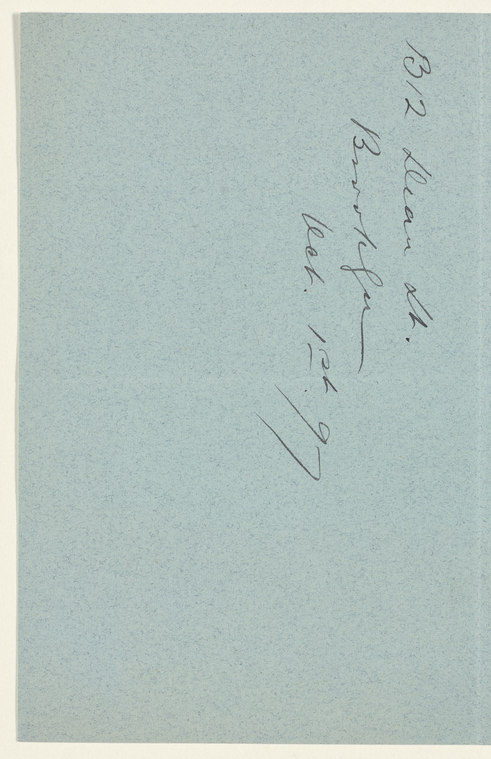 1312 Dean St.
Brooklyn
Oct. 1st. 97